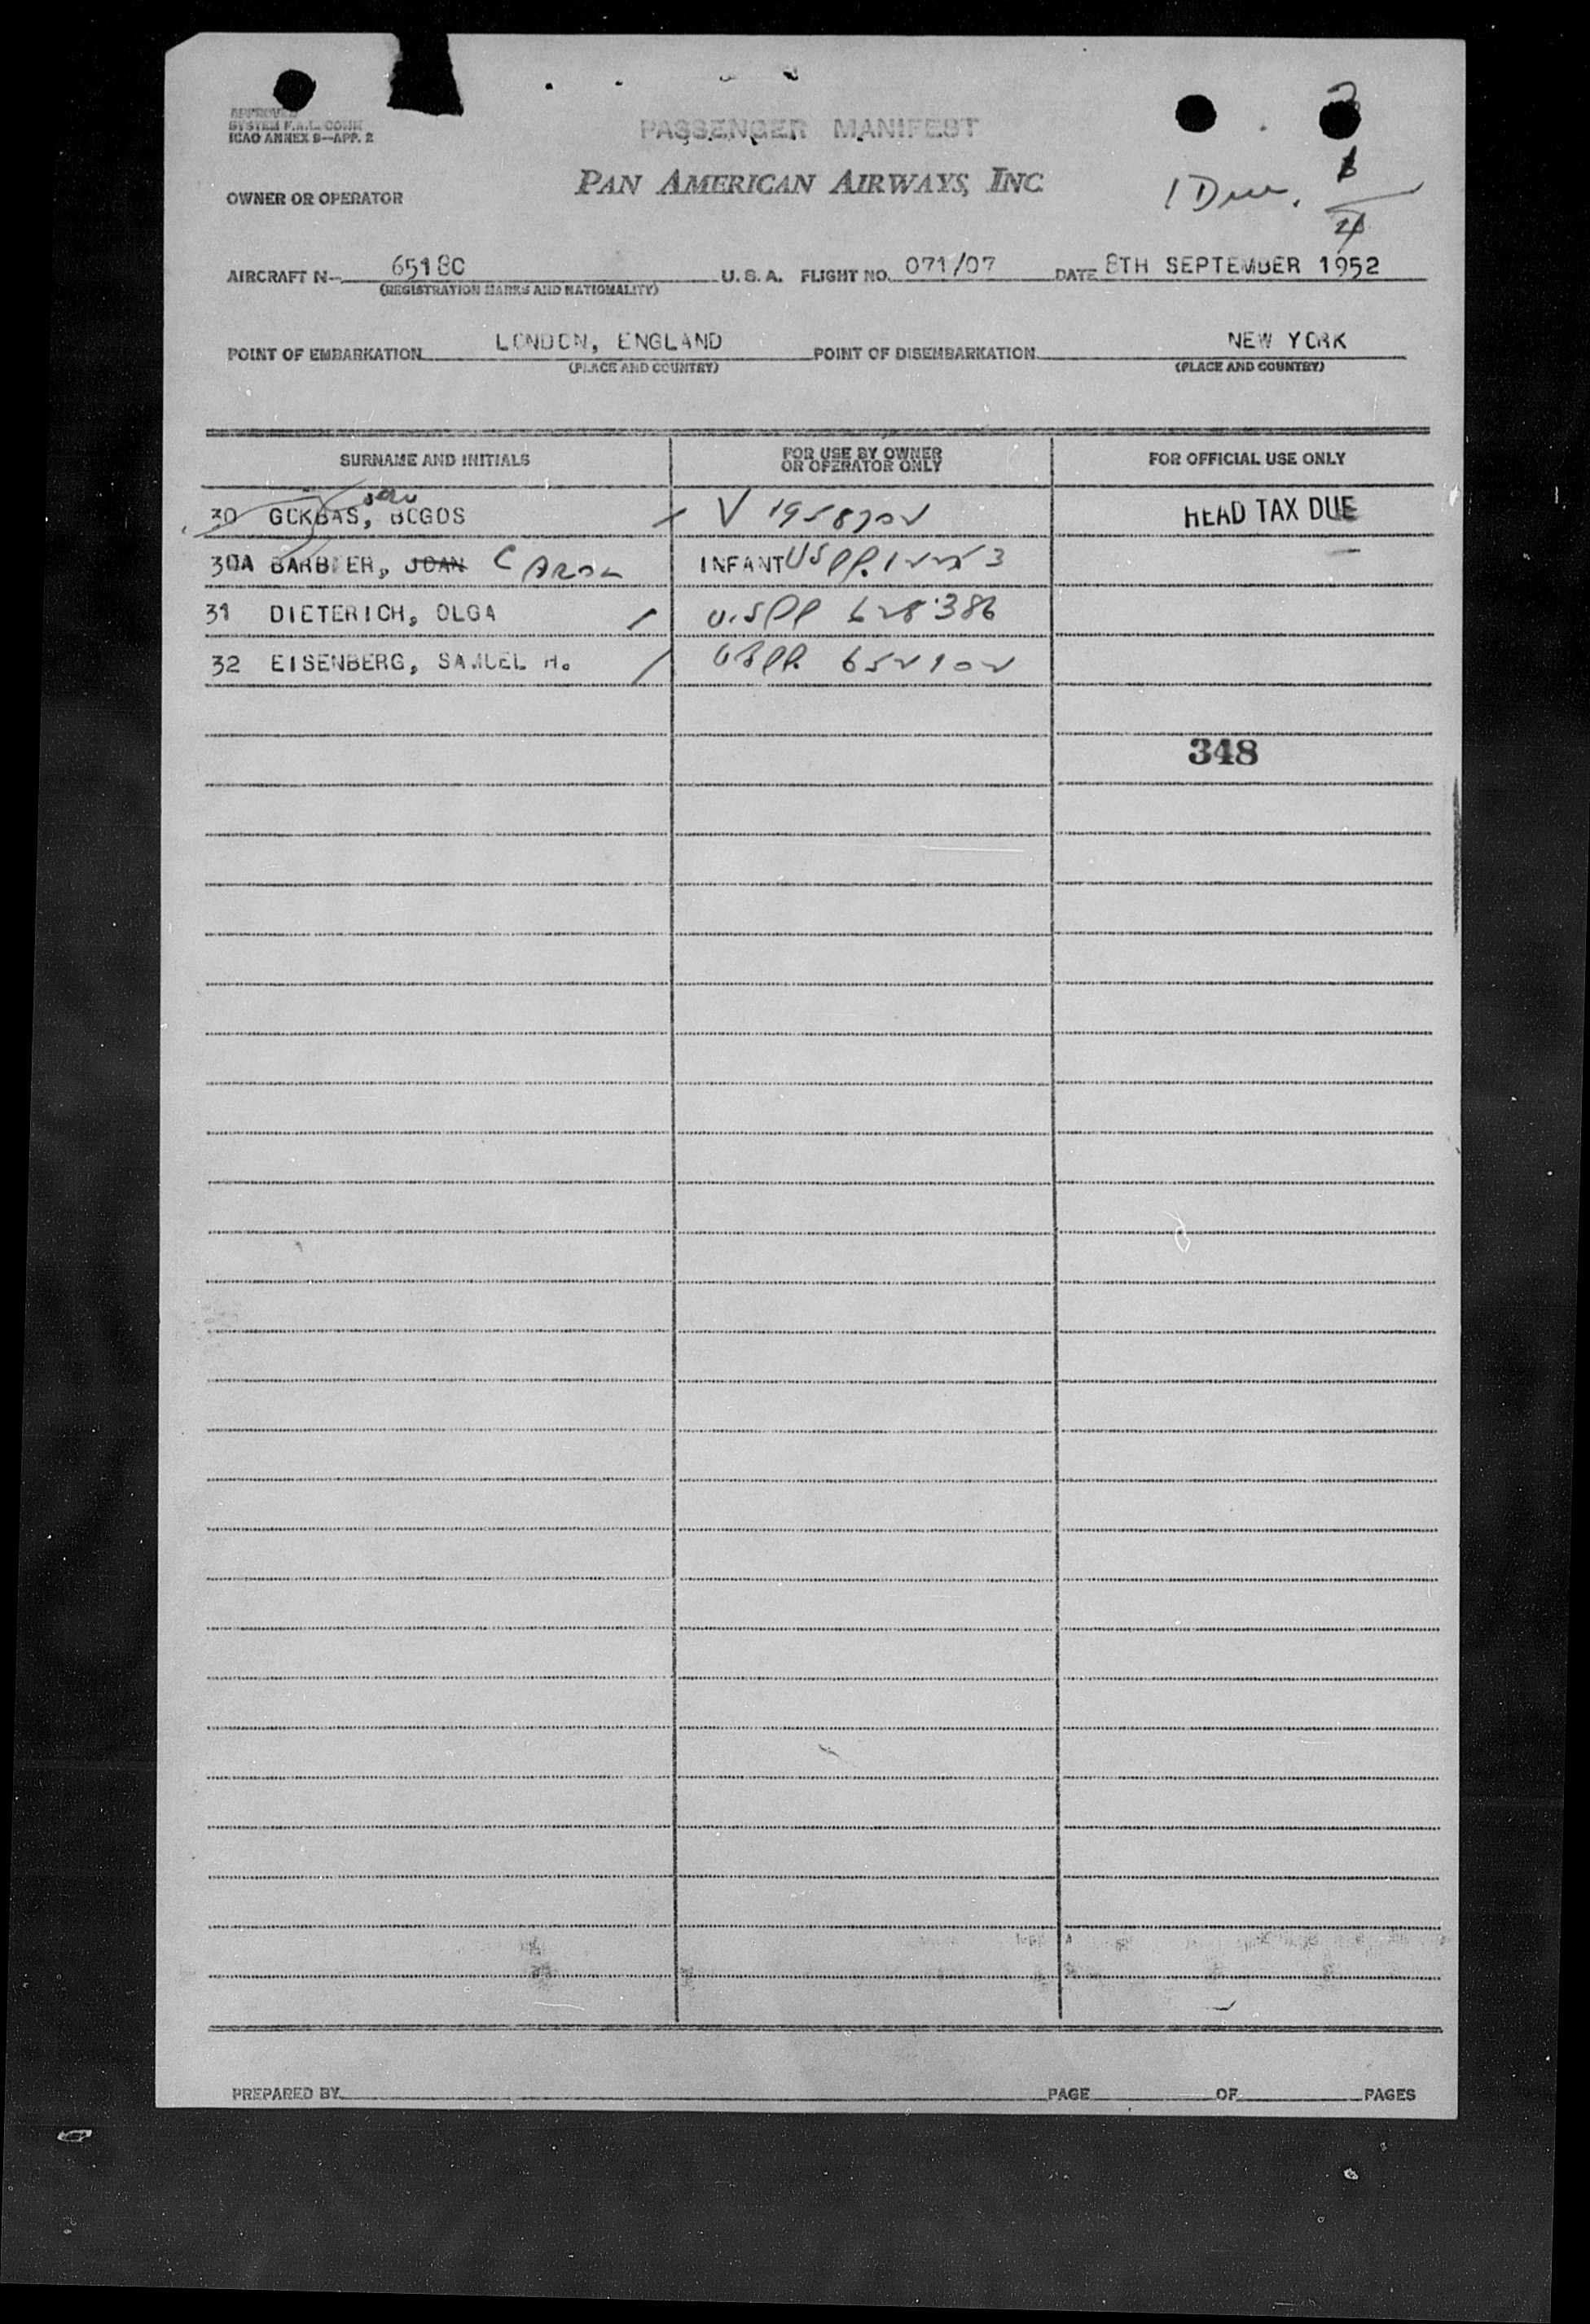 APPROVED
SYSTEM F.A.L. COMM
ICAO ANNEX 9—APP. 2
PASSENGER MANIFEST
PAN AMERICAN AIRWAYS, INC
OWNER OR OPERATOR
1 Due.
AIRCRAFT N— 6518C U. S. A. FLIGHT NO. 071/07 DATE 8TH SEPTEMBER 1952
(REGISTRATION MARKS AND NATIONALITY)
POINT OF EMBARKATION LONDON, ENGLAND POINT OF DISEMBARKATION NEW YORK
(PLACE AND COUNTRY) (PLACE AND COUNTRY)
SURNAME AND INITIALS FOR USE BY OWNER OR OPERATOR ONLY FOR OFFICIAL USE ONLY
30 GOKBAS, BOGOS V 1958702 HEAD TAX DUE
30A BARBIER, JOAN CAROL INFANT US PP.
31 DIETERICH, OLGA U.S PP 628386
32 EISENBERG, SAMUEL H. US PP. 652902
348
PREPARED BY PAGE OF PAGES